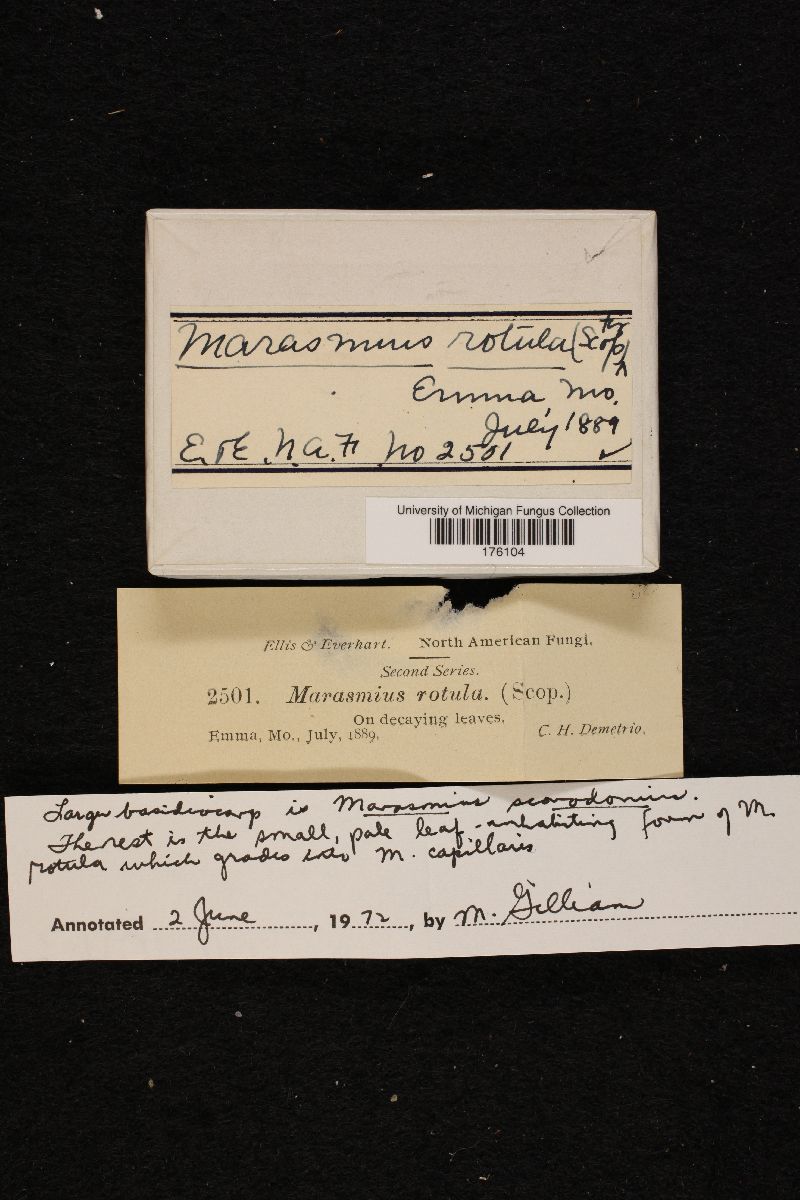 Marasmius rotula (Scop)
Fr
Emma, Mo.
July 1889
E. & E. N. A. F. No 2501
University of Michigan Fungus Collection
176104
Ellis & Everhart. North American Fungi.
Second Series.
2501. Marasmius rotula. (Scop.)
On decaying leaves.
Emma, Mo., July, 1889. C. H. Demetrio.
Larger basidiocarp is Marasmius scorodonius.
The rest is the small, pale leaf-inhabiting form of M.
rotula which grades into M. capillaris
Annotated 2 June, 1972, by M. Gilliam